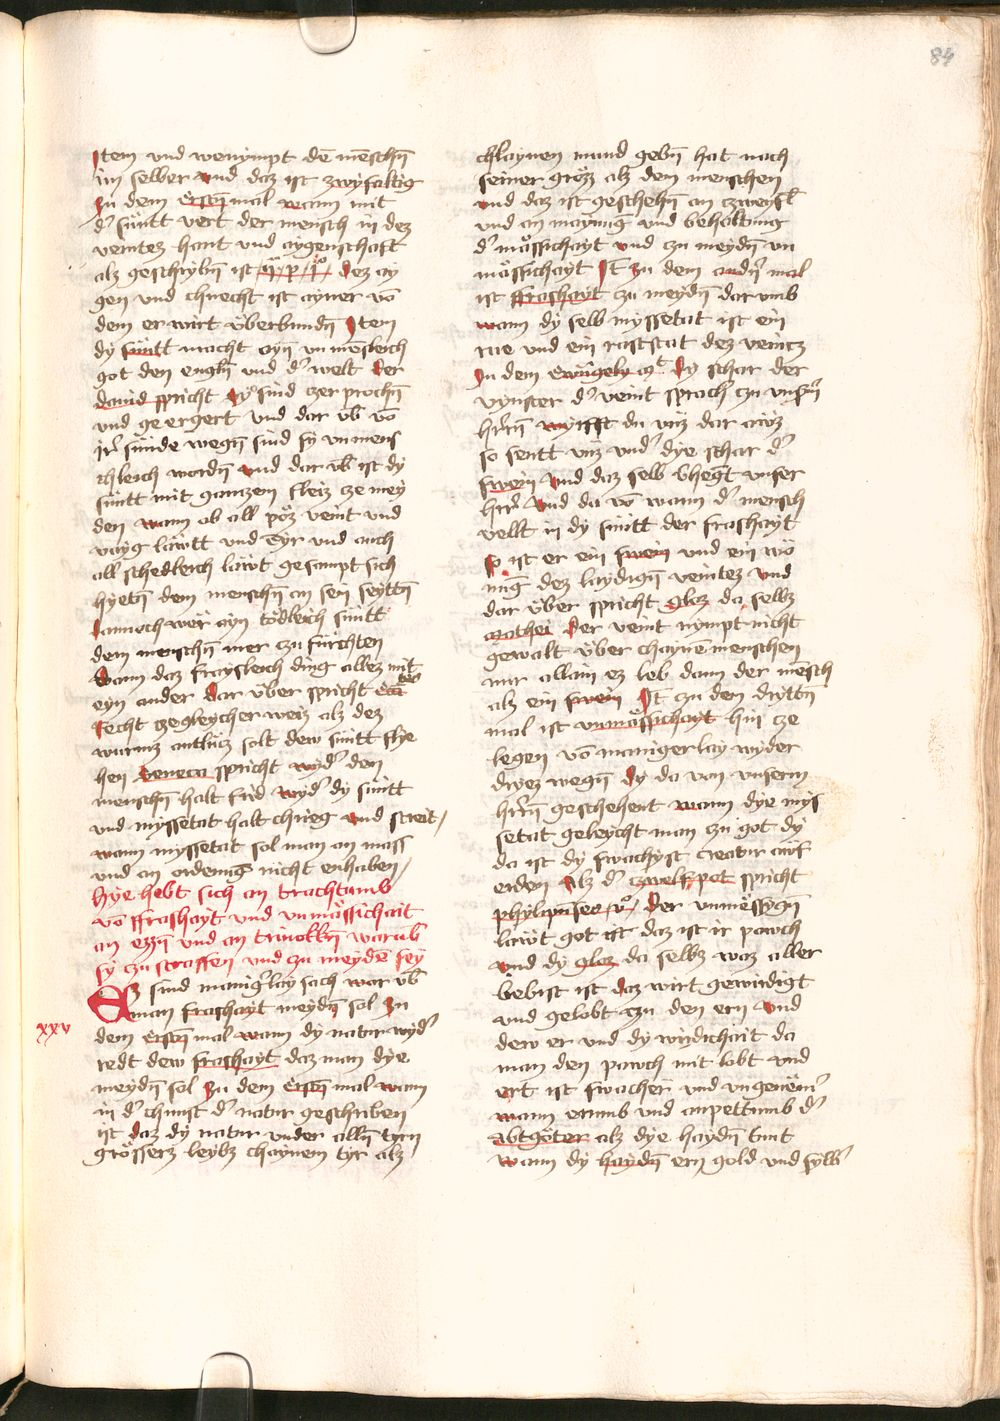 84
Item und wenympt dē mēschn̄
im selber und daz ist zwyfaltig
zu dem Erstn̄ mal wann mit
d' sünt vert der mensch in dez
veintez hant und aygenschaft
alz geschrybn̄ ist Dez ay
gen und chnecht ist ayner vō
dem er wirt überbundn̄ Item
dy süntt macht ayn̄ unmēsleich
got den engln̄ und d' welt Der
dauid spricht Sy sind zerprochn̄
und ge ergert und dar vb vō
ir' sünde wegn̄ sind sy unmens
chleich wordn̄ und dar vb ist dy
süntt mit ganczem fleiz ze mey
den wann ob all pöz veint und
vayg läwtt und Tyr und auch
all schedleich läwt gesampt sich
hyetn̄ dem menschn̄ an sen seyttn̄
dannoch wer ayn tödleich süntt
dem menschn̄ mer czu fürchten
Wann daz fraysleich ding allez mit
eyn ander Dar über spricht
Recht zegleycher weiz alz dez
wurmz antlücz solt dew süntt flye
hen Seneca spricht wyd' den
menschn̄ halt frid wyd' dy süntt
und myssetat halt chrieg und streit
wann myssetat sol man an mass
und an ordenūg nicht enhaben
hye hebt sich an trachtumb
vō ffrashayt und unmässichait
an ezzn̄ und an trinckn̄ warūb
sy zu straffen und zu meydē sey
Ez sind manig'lay sach war vb
man frashayt meydn̄ sol Zu
xxv
dem Erstn̄ mal wann dy natur wyd'
redt dew frashayt daz man dye
meydn̄ sol Zu dem Erstn̄ mal wann
in d' chunst d' natur geschriben
ist daz dy natur under alln̄ tyrn
grösserz leybz chaynem tyr alz
chlaynen mund gebn̄ hat nach
seiner gröz alz dem menschen
und daz ist geschehn̄ an czweyfl
und an maynūg und behaltung
d' mässichayt und czu meydn̄ un
mässichayt It̄ Zu dem andn̄ mal
ist ffrashayt zu meydn̄ dar umb
wann dy selb myssetat ist ein
rae und ein raststat dez veincz
In dem Ewāgely Dy schar der
vynster d' veint sprach zu unsn̄
hrn̄ wyrfft du unz dar auz
so sentt unz und' dye schar d'
swein und daz selb vhegt unser
hrr̄ und da vō wann d' mensch
vellt in dy süntt der frashayt
so ist er ein swein und ein wo
nūg dez laydign̄ veintez und
dar über spricht gloz da selbz
mathei Der veint nympt nicht
gewalt über chaynē menschen
nur allain ez leb dann der mēsch
alz ein swein It̄ czu den dryttn̄
mal ist unmässichayt hin ze
legen vō manigerlay wyder
drycz wegn̄ dy da von unserm
hrn̄ geschehent wann dye mys
setat geleycht man zu got dy
da ist dy swachyst creatur auf
erden Alz d' czwelfpot spricht
phylipenses Der unmässign̄
läwt got ist daz ist ir pawch
und dy gloz da selbz waz aller
liebist ist daz wirt gewirdigt
und gelobt czu den ern und
dew er und dy wirdichait da
man den pawch mit lobt und
ert ist swacher und ungenem'
wann erumb und anpettumb d'
abtgötter alz dye haydn̄ tunt
wann dy haydn̄ ern gold und sylb'